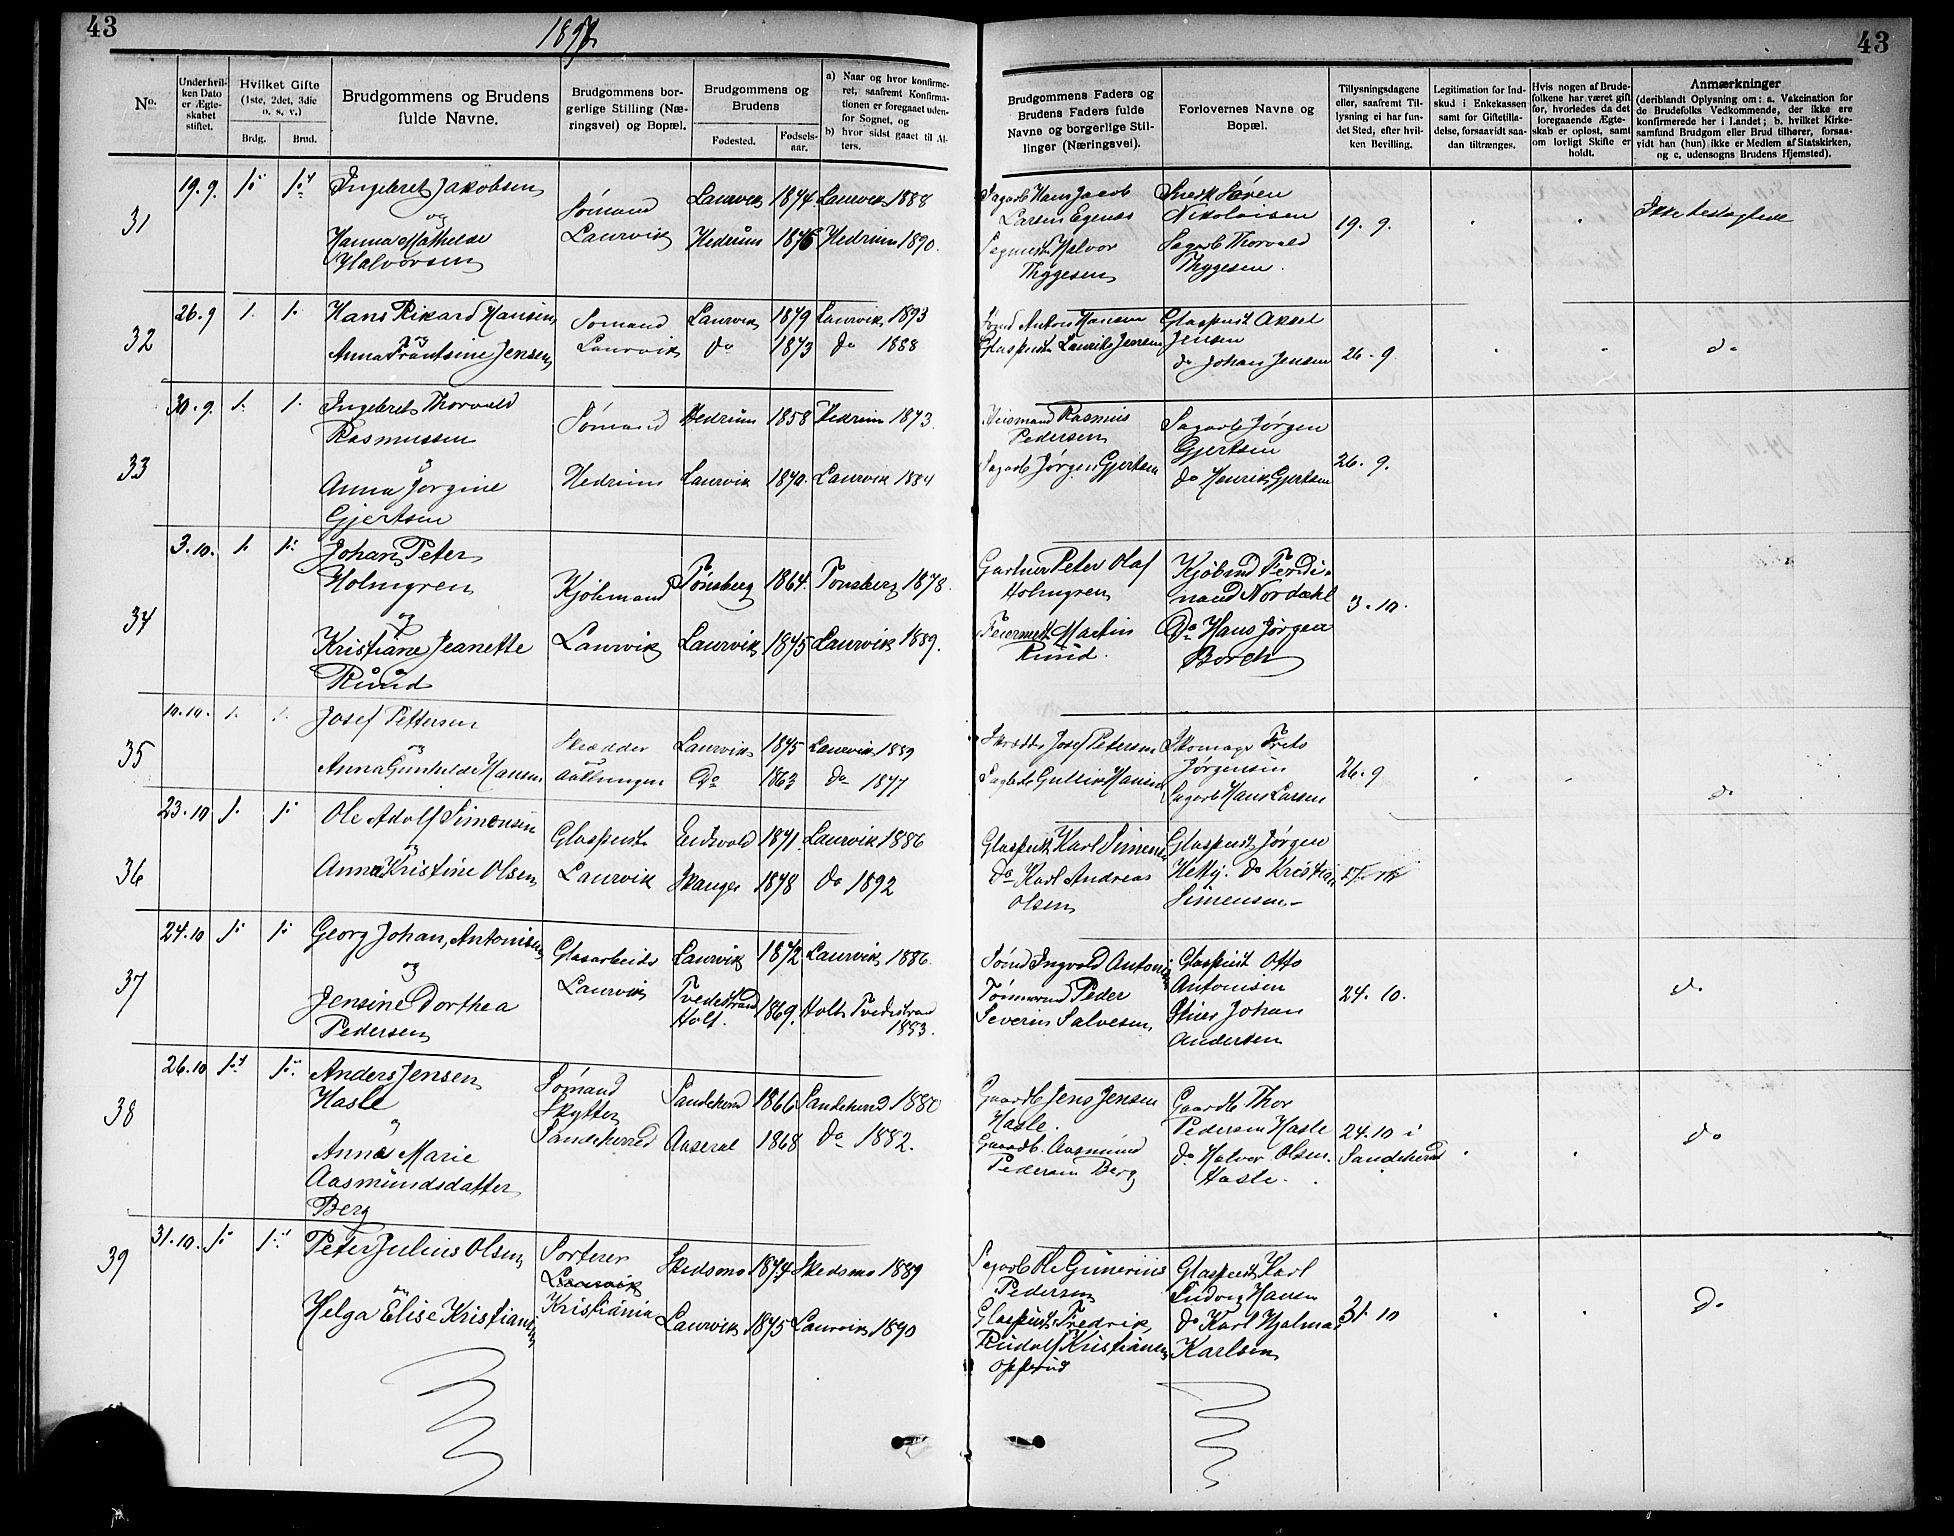 43
1897.
43
No.
Underhvilken Dato er Ægteskabet stiftet.
Hvilket Gifte (1ste, 2det, 3die o. s. v.)
Brdg.
Brud.
Brudgommens og Brudens fulde Navne.
Brudgommens borgerlige Stilling (Næringsvei) og Bopæl.
Brudgommens og Brudens
Fødested.
Fødselsaar.
a) Naar og hvor konfirmeret, saafremt Konfirmationen er foregaaet udenfor Sognet, og
b) hvor sidst gaaet til Alters.
Brudgommens Faders og Brudens Faders fulde Navne og borgerlige Stillinger (Næringsvei).
Forlovernes Navne og Bopæl.
Tillysningsdagene eller, saafremt Tillysning ei har fundet Sted, efter hvilken Bevilling.
Legitimation for Indskud i Enkekassen samt for Giftetilladelse, forsaavidt saadan tiltrænges.
Hvis nogen af Brudefolkene har været gift før, hvorledes da det foregaaende Ægteskab er opløst, samt om lovligt Skifte er holdt.
Anmærkninger
(deriblandt Oplysning om: a. Vakcination for de Brudefolks Vedkommende, der ikke ere konfirmerede her i Landet; b. hvilket Kirkesamfund Brudgom eller Brud tilhører, forsaavidt han (hun) ikke er Medlem af Statskirken, og c. udensogns Brudens Hjemsted).
31
19.9. Ingebret Jakobsen
og
Hanna Mathilde
Halvorsen
Sømand
Laurvik
Laurvik 1874. Laurvik 1888
Hedrum 1876 Hedrum 1890.
Sagarb Hans Jacob
Larsen Egenæs
Sagmest. Halvor
Thygesen
Snedk Søren
Nikolaisen
Sagarb Thorvald
Thygesen.
19. 9.
Ikke beslægtede
32
26.9 1. 1. Hans Rikard Hansen
og
Anna Frantsine Jensen
Sømand
Laurvik
Laurvik 1879 Laurvik 1893
do 1873 do 1888
Sømd Anton Hansen
Glaspust Laurits Jensen
Glaspust Aksel
Jensen
do Johan Jensen
26. 9
do
33
30.9. 1. 1. Ingebret Thorvald
Rasmussen
og
Anna Jørgine
Gjertsen
Sømand
Hedrum
Hedrum 1858 Hedrum 1873.
Laurvik 1870. Laurvik 1884
Husmand Rasmus
Pedersen
Sagarb Jørgen Gjertsen
Sagarb Jørgen
Gjertsen
do Henrik Gjertsen
26. 9.
34
3.10. 1. Johan Peter
Holmgren
og
Kristiane Jeanette
Ruud
Kjøbmand
Laurvik
Tønsberg 1864. Tønsberg 1878.
Laurvik 1875 Laurvik 1889.
Gartner Peter Olaf
Holmgren
Feiermest Martin
Ruud.
Kjøbmd Ferdinand Nordahl
Do Hans Jørgen
Borch
3.10.
35
10.10. 1. 1. Josef Pettersen
og
Anna Gunhilde Hansen
Skrædder
Laurvik 1875 Laurvik 1889
Do 1863 do 1877
Skrædder Josef Petersen
Sagarb Gullik Hansen
Skomager Frits
Jørgensen
Sagarb Hans Larsen
26.9
do
36
23.10 1. 1. Ole Adolf Simensen
og
Anna Kristine Olsen
Glaspust
Laurvik
Eidsvold 1871. Laurvik 1886
Skauger 1878 do 1892
Glaspust Karl Simensen
do Karl Andreas
Olsen
Glaspust Jørgen
Hetty. do Kristian
Simensen
37
24.10 1. 1. Georg Johan Antonisen
og
Jensine Dorthea
Pedersen
Glasarbeids
Laurvik
Laurvik 1872 Laurvik 1886.
Tvedestrand
Holt. 1869. Holt Tvedestrand
1883.
Sømd Ingvald Antonisen
Tømmermd Peder
Severin Salvesen
Glaspust Otto
Antonisen
Johan
Andersen
24. 10.
do
38
26.10 Anders Jensen
Hasle
og
Anna Marie
Aasmundsdatter
Berg
Sømand
Skytter
Sandeherred
Sandeherred 1866 Sandeherred 1880
Aaseral 1868 do 1882.
Gaardb Jens Jensen
Hasle.
Gaardb. Aasmund
Pedersen Berg
Gaardb Thor
Pedersen Hasle
do Halvor Olsen
Hasle.
24.10 i
Sandeherred
do
39
31.10. Peter Julius Olsen
og
Helga Elise Kristiansen
Sorterer
Laurvik
Kristiania
Skedsmo 1874 Skedsmo 1889
Laurvik 1875 Laurvik 1890
Sagarb Ole Gunerius
Pedersen
Glaspust Fredrik
Rudolf Kristiansen
Opperud
Glaspust Karl
Ludvig Hansen
do Karl Hjalmar
Karlsen
31.10
do